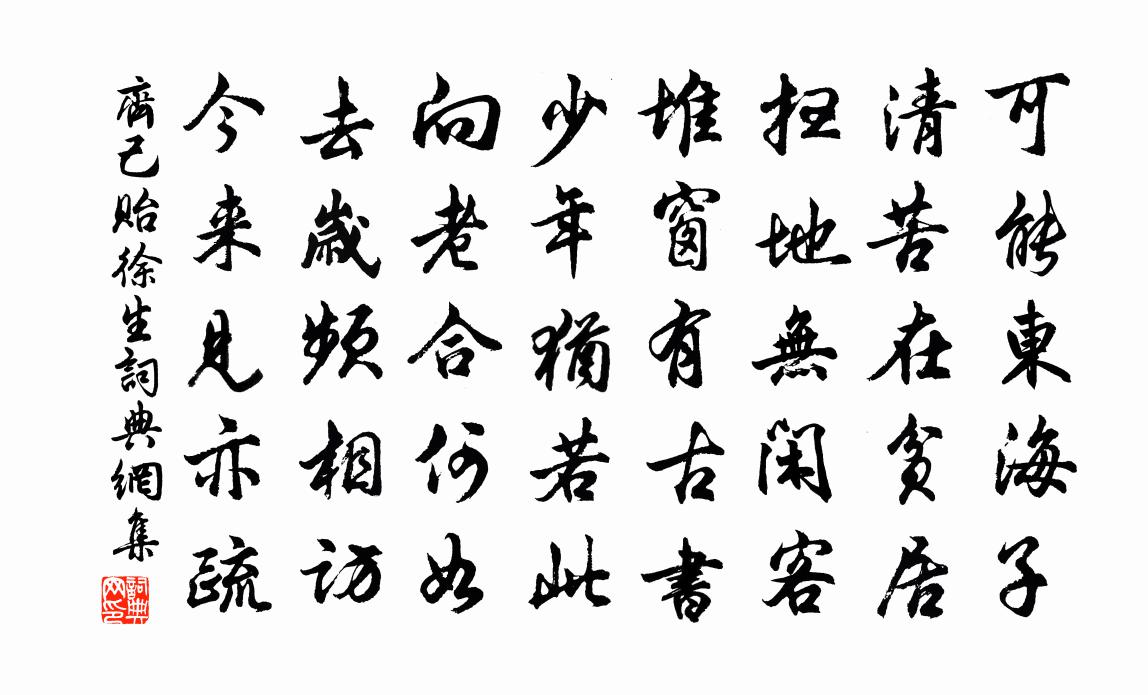 可能東海子
清苦在貧居
掃地無閑客
堆窗有古書
少年猶若此
向老合何如
去歲頻相訪
今來見亦疏
齊己貽徐生詞典網集
詞典網印